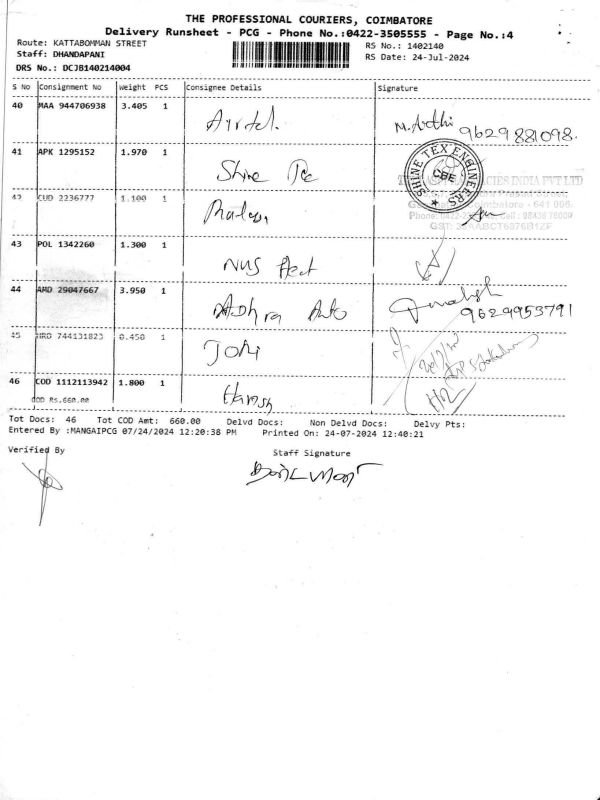 THE PROFESSIONAL COURIERS, COIMBATORE
Delivery Runsheet - PCG - Phone No.:0422-3505555 - Page No.:4
Route: KATTABOMMAN STREET
RS No.: 1402140
Staff: DHANDAPANI
RS Date: 24-Jul-2024
DRS No.: DCJB140214004
S No Consignment No Weight PCS Consignee Details Signature
40 MAA 944706938 3.405 1 Airtel. M. Arthi 9629881098.
41 APK 1295152 1.970 1 Shine Tec
SHINE TEX ENGINEERS CBE
INDIA PVT LTD
42 CUD 2236777 1.100 1
43 POL 1342260 1.300 1
44 AMD 29047667 3.950 1 Auto 9629953791
45 HRO 744131823 0.450 1
46 COD 1112113942 1.800 1 Harish
COD Rs.660.00
Tot Docs: 46 Tot COD Amt: 660.00 Delvd Docs: Non Delvd Docs: Delvy Pts:
Entered By :MANGAIPCG 07/24/2024 12:20:38 PM Printed On: 24-07-2024 12:40:21
Verified By Staff Signature